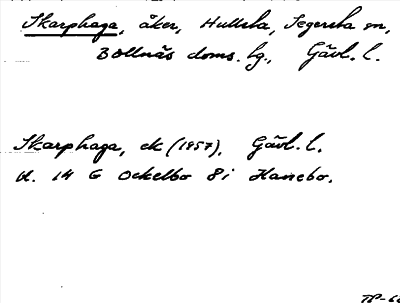 Skarphaga, åker, Hullsta, Segersta sn,
Bollnäs doms. hg., Gävl. l.
Skarphaga, ek (1957). Gävl. l.
d. 14 G Ockelbo 8i Hanebo.
TP-60